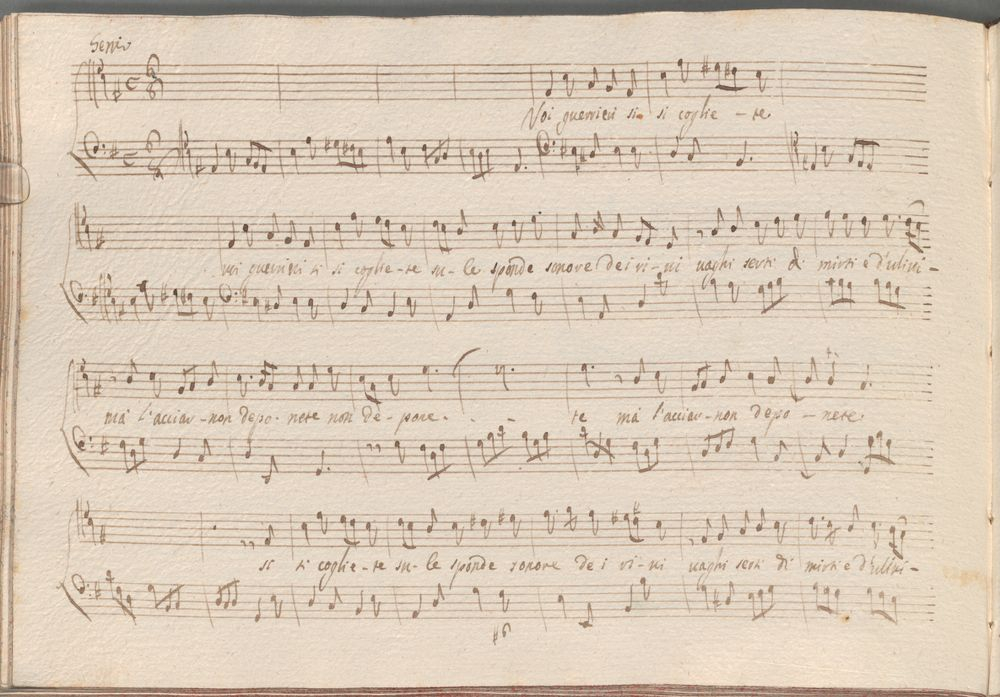 Voi guerrieri si si coglie - te
voi guerrieri si si coglie - te su - le sponde sonore dei ri - vi vaghi serti di mirti e d'ulivi -
mà l'acciar - non depo - nete non de - pone - - - te mà l'acciar - non depo - nete
si si coglie - te su - le sponde sonore dei ri - vi vaghi serti di mirti e d'ulivi -
#6